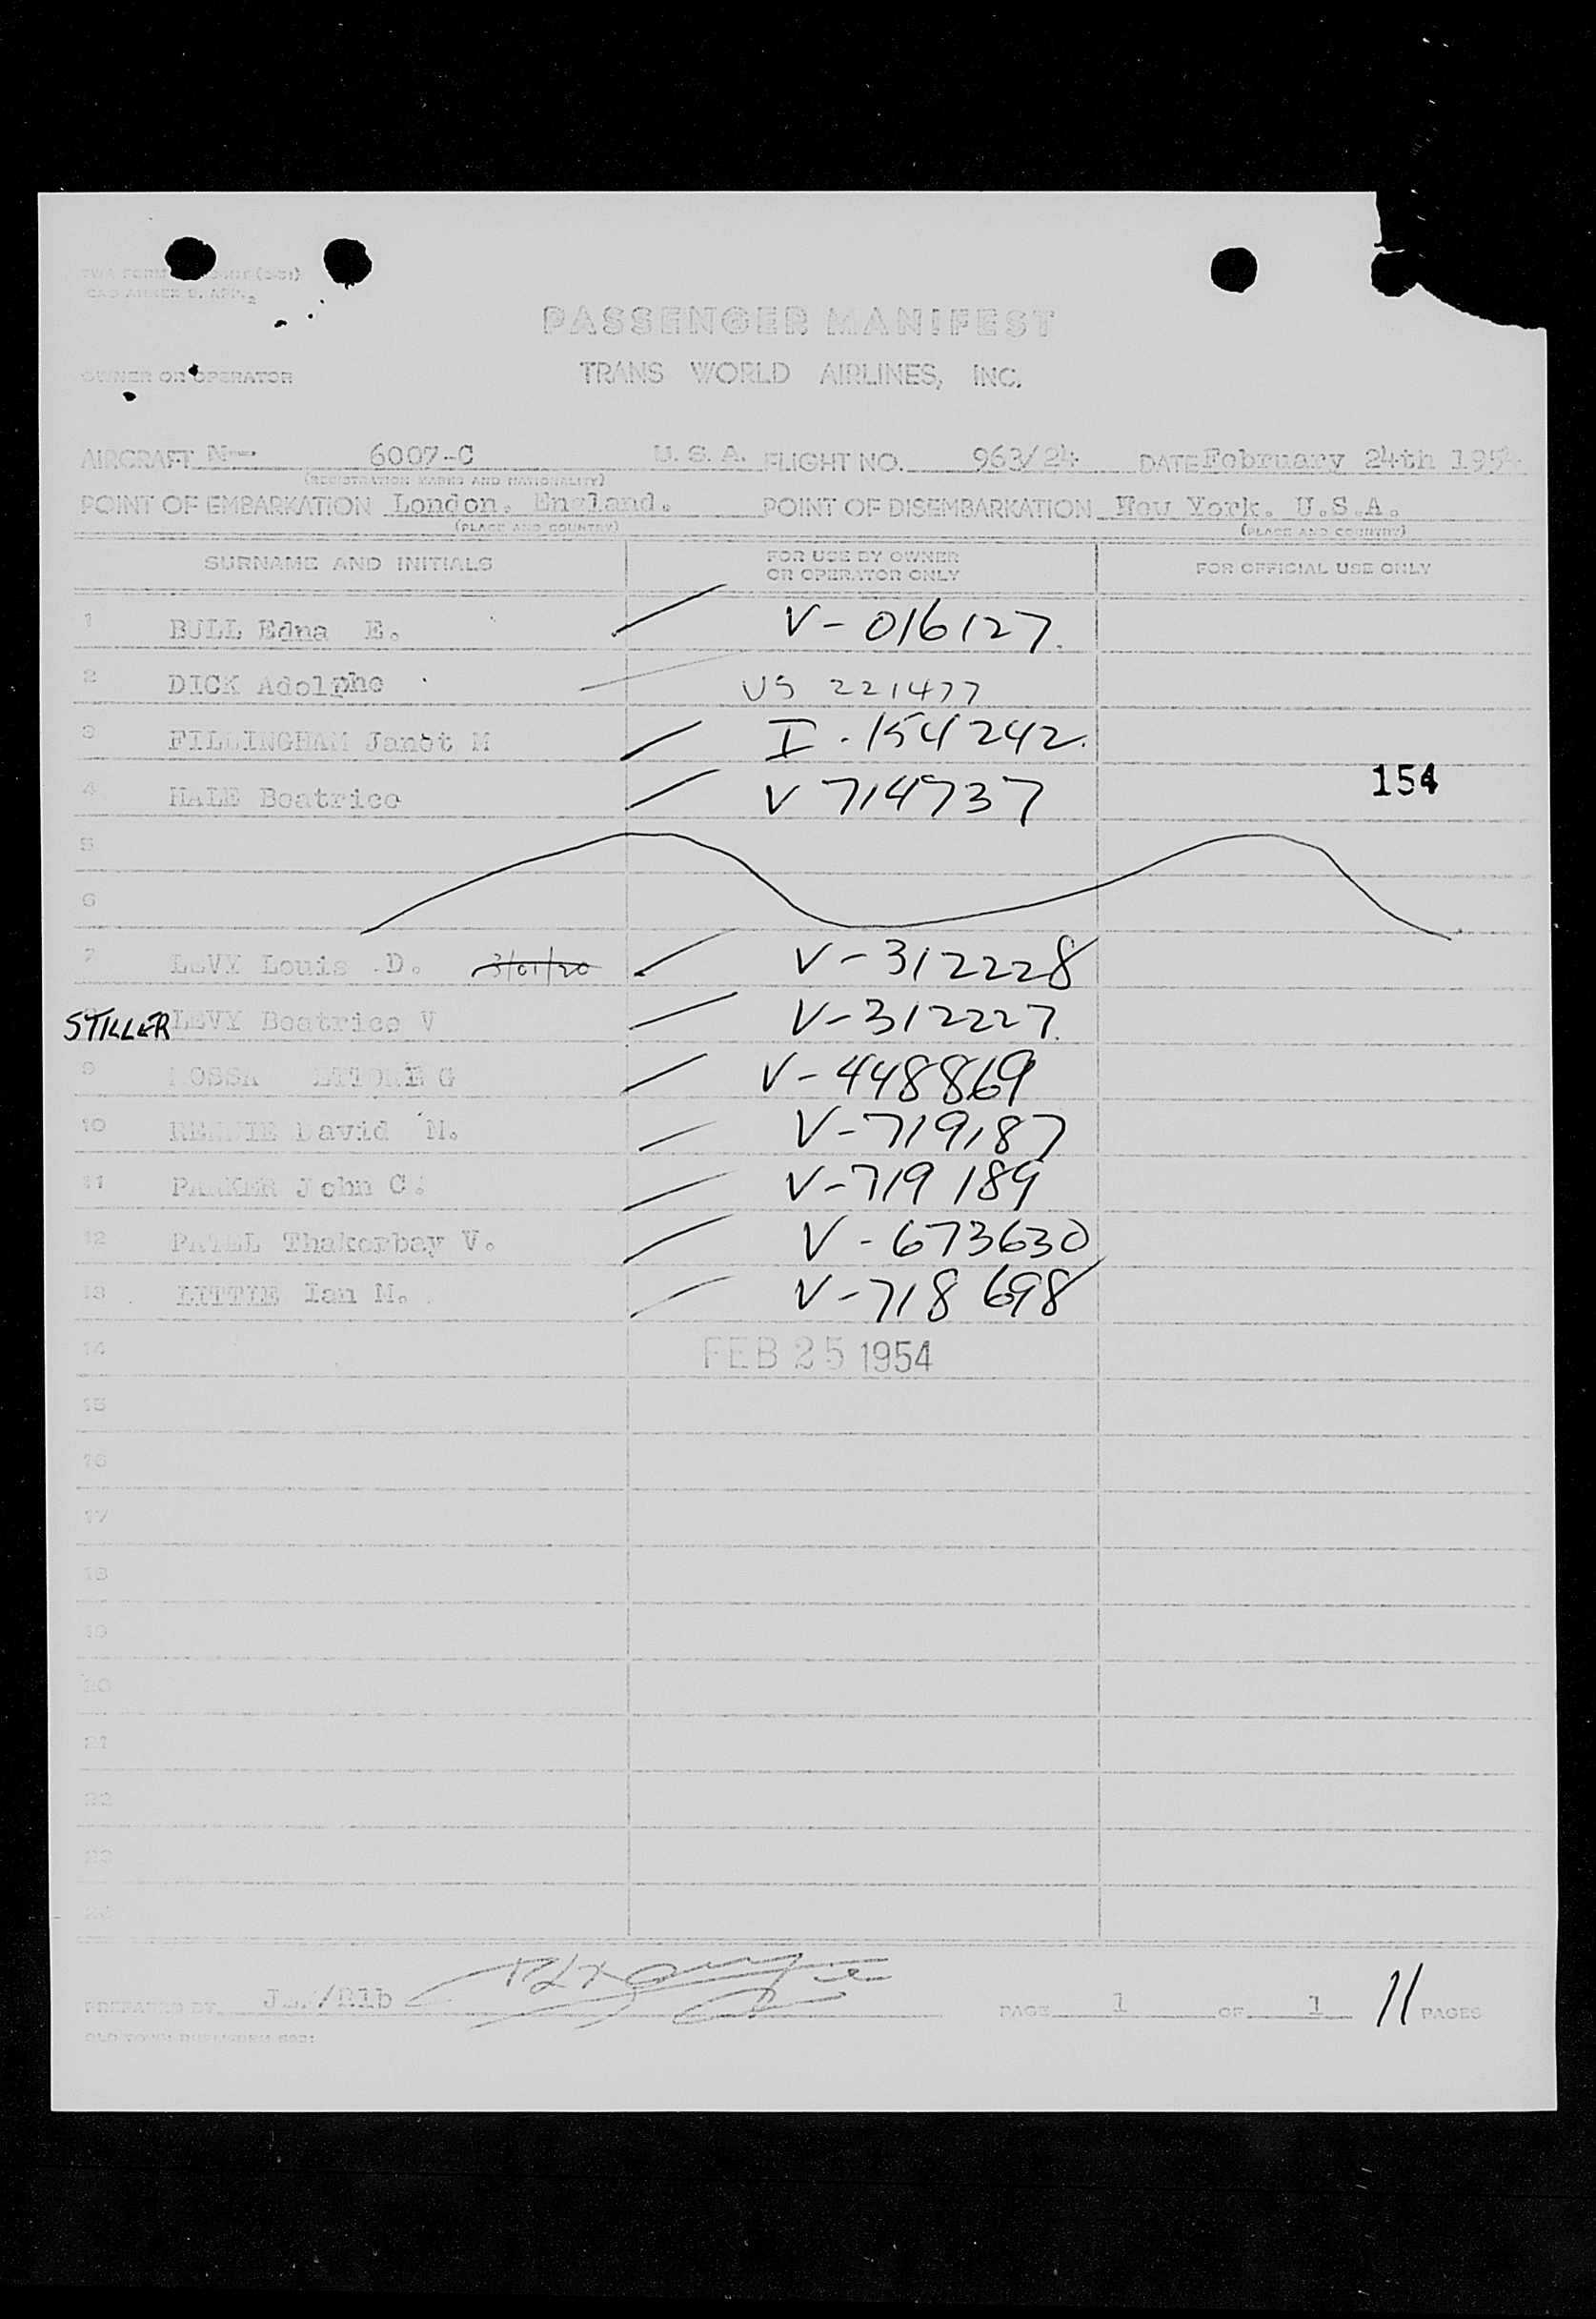 TWA FORM (3-51)
CAO ANNEX 9, APP. 2
PASSENGER MANIFEST
OWNER OR OPERATOR TRANS WORLD AIRLINES, INC.
AIRCRAFT N-- 6007-C U. S. A. FLIGHT NO. 963/24 DATE February 24th 1954
(REGISTRATION MARKS AND NATIONALITY)
POINT OF EMBARKATION London. England. POINT OF DISEMBARKATION New York. U.S.A.
(PLACE AND COUNTRY) (PLACE AND COUNTRY)
SURNAME AND INITIALS FOR USE BY OWNER OR OPERATOR ONLY FOR OFFICIAL USE ONLY
1 BULL Edna E. V-016127.
2 DICK Adolphe US 221477
3 FILLINGHAM Janet M I-154242.
4 HALE Beatrice V 714737
154
5
6
7 LEVY Louis D. 3/01/20 V-312228
STILLER LEVY Beatrice V V-312227.
9 G V-448869
10 RENNIE David N. V-719187
11 PARKER John C. V-719 189
12 PATEL Thakorbay V. V-673630
13 LITTLE Ian M. V-718 698
14 FEB 25 1954
15
16
17
18
19
20
21
22
23
24
PREPARED BY PAGE 1 OF 1 11 PAGES